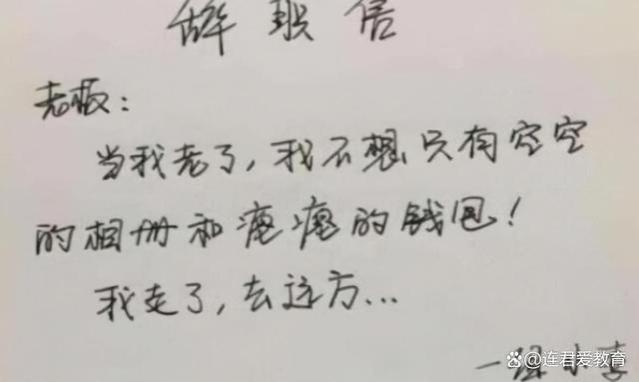 辞职信
老板：
当我老了，我不想只有空空
的相册和瘪瘪的钱包！
我走了，去远方...
一组小李
百家号@连君爱教育